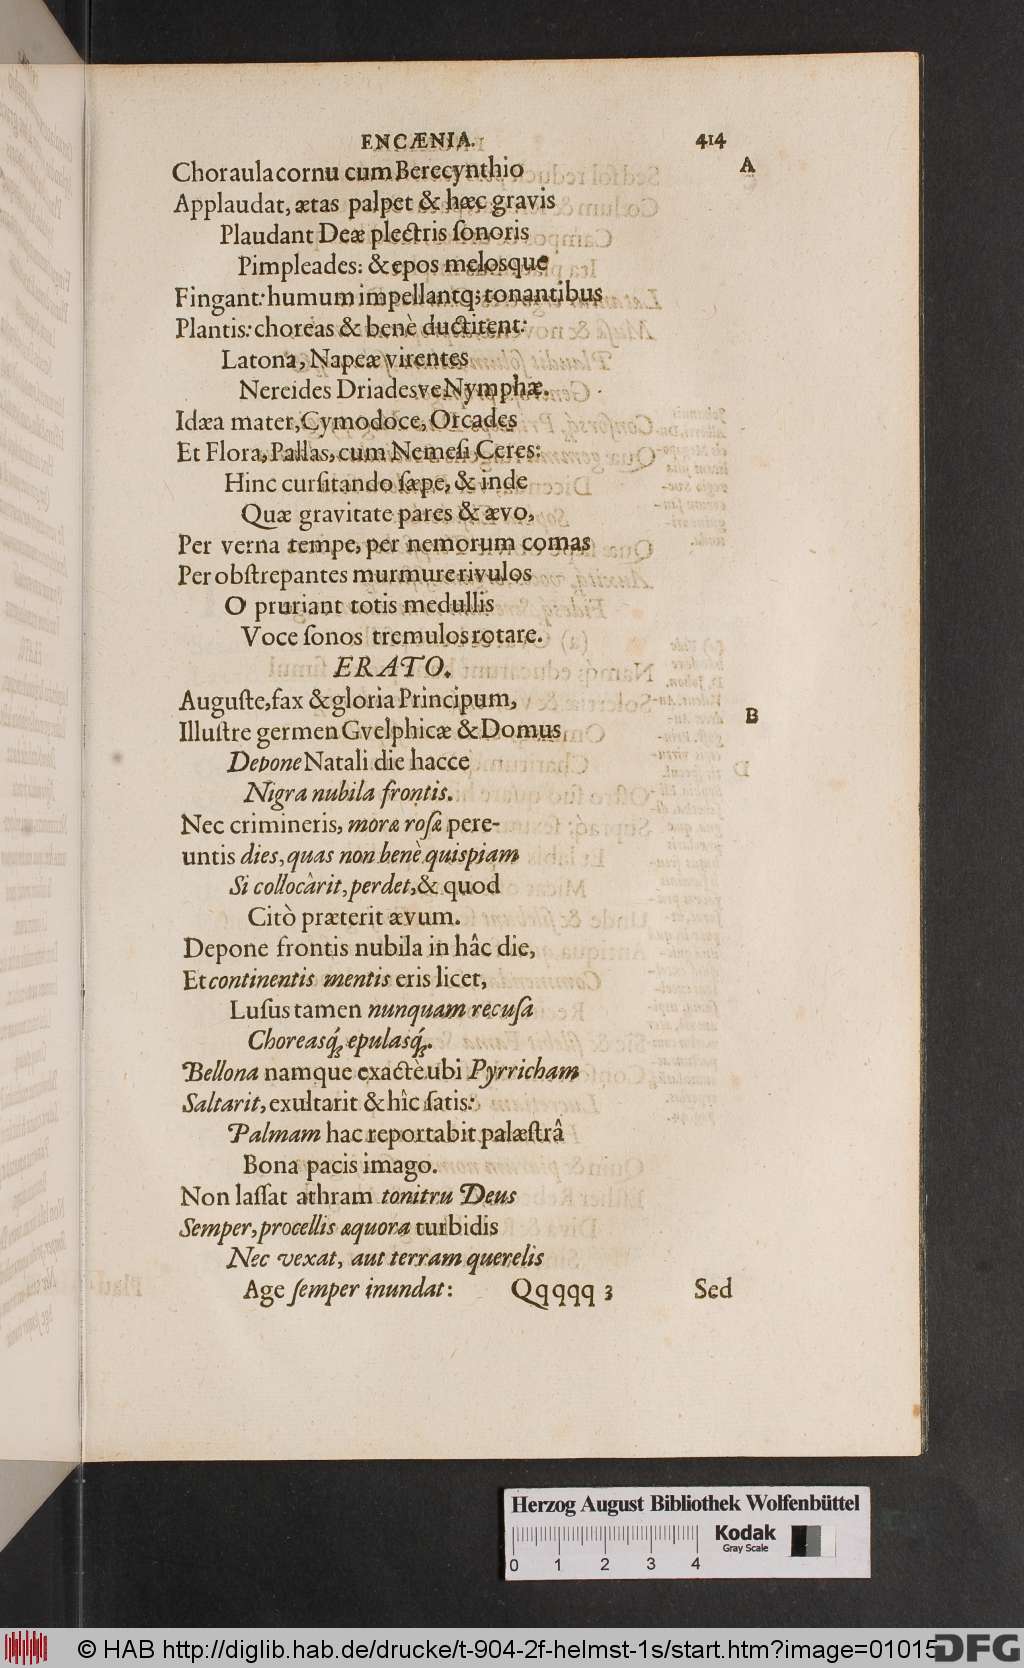 ENCÆNIA. 414
A
Choraula cornu cum Berecynthio
Applaudat, ætas palpet & hæc gravis
Plaudant Deæ plectris ſonoris
Pimpleades: & epos melosque
Fingant: humum impellantq; tonantibus
Plantis: choreas & benè ductitent:
Latona, Napeæ virentes
Nereides Driadesve Nymphæ.
Idæa mater, Cymodoce, Orcades
Et Flora, Pallas, cum Nemeſi Ceres:
Hinc curſitando ſæpe, & inde
Quæ gravitate pares & ævo,
Per verna tempe, per nemorum comas
Per obſtrepantes murmure rivulos
O pruriant totis medullis
Voce ſonos tremulos rotare.
ERATO.
Auguſte, fax & gloria Principum,
Illuſtre germen Gvelphicæ & Domus
B
Depone Natali die hacce
Nigra nubila frontis.
Nec crimineris, moræ roſæ pere-
untis dies, quas non benè quispiam
Si collocârit, perdet, & quod
Citò præterit ævum.
Depone frontis nubila in hâc die,
Et continentis mentis eris licet,
Luſus tamen nunquam recuſa
Choreasq́; epulasq́;.
Bellona namque exactè ubi Pyrricham
Saltarit, exultarit & hîc ſatis:
Palmam hac reportabit palæſtrâ
Bona pacis imago.
Non laſſat athram tonitru Deus
Semper, procellis æquora turbidis
Nec vexat, aut terram querelis
Age ſemper inundat: Qqqqq 3 Sed
Herzog August Bibliothek Wolfenbüttel
Kodak
Gray Scale
0 1 2 3 4
© HAB http://diglib.hab.de/drucke/t-904-2f-helmst-1s/start.htm?image=01015
DFG